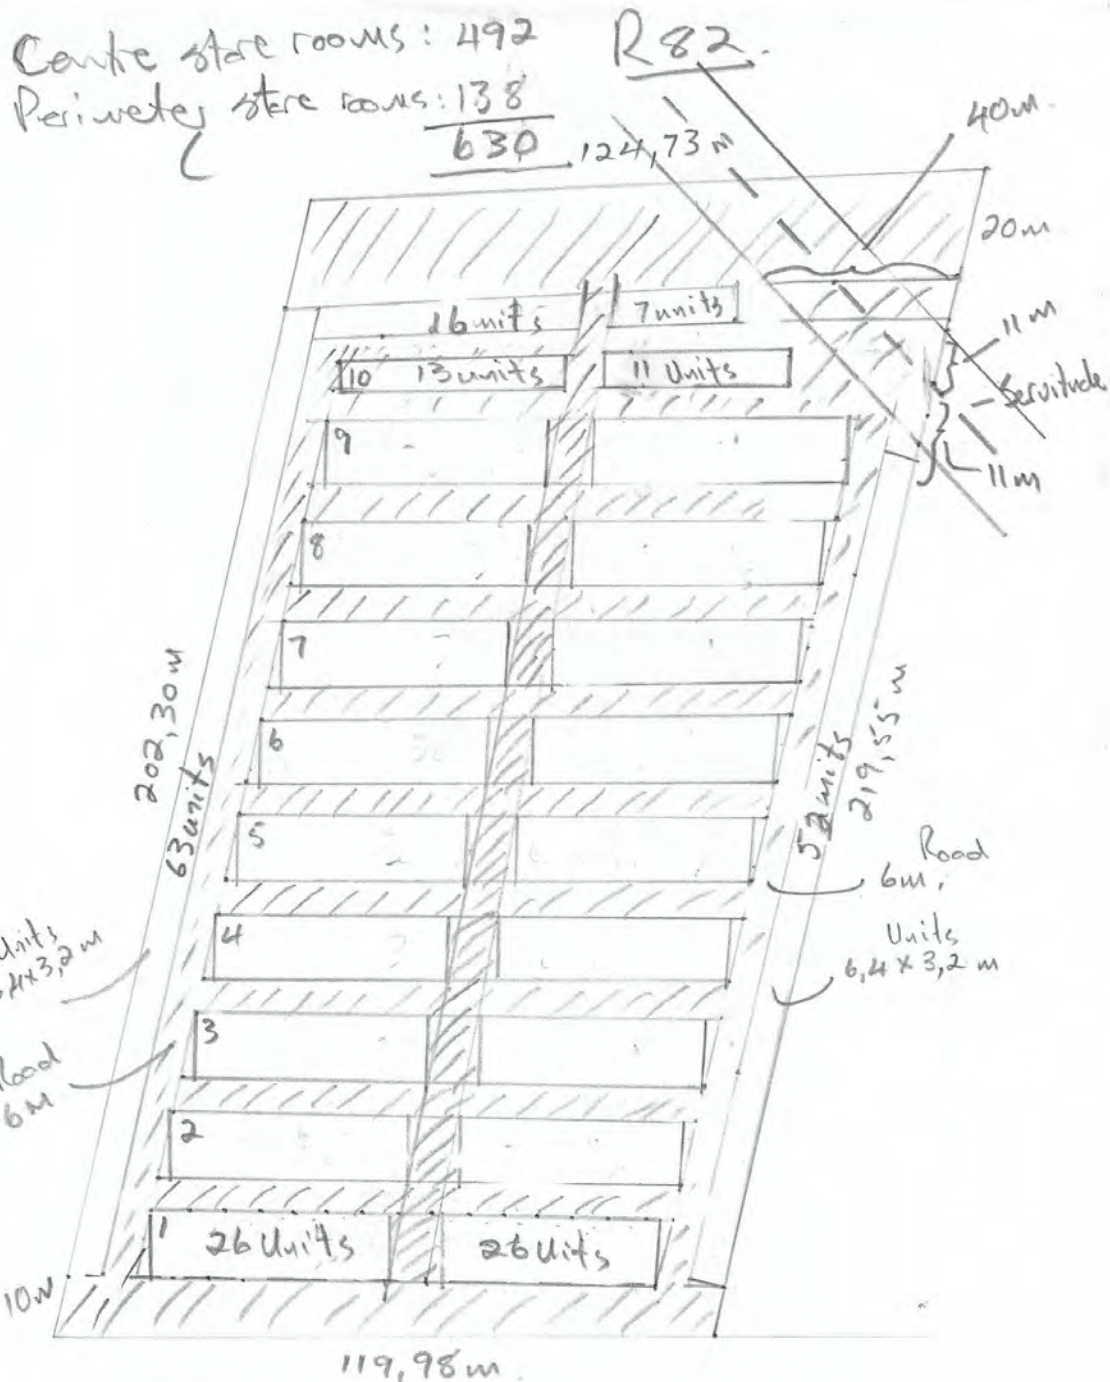 Centre store rooms: 492
Perimeter store rooms: 138
630
R82.
124,73 m
40m.
20m
16 units
7 units
11 m
10 13 units
11 Units
Servitude
11 m
9
8
7
6
5
4
3
2
1 26 Units
26 Units
202,30 m
63 units
52 units
219,55 m
Road
6m,
Units
6,4 x 3,2 m
Units
6,4 x 3,2 m
Road
6m
10m
119,98 m